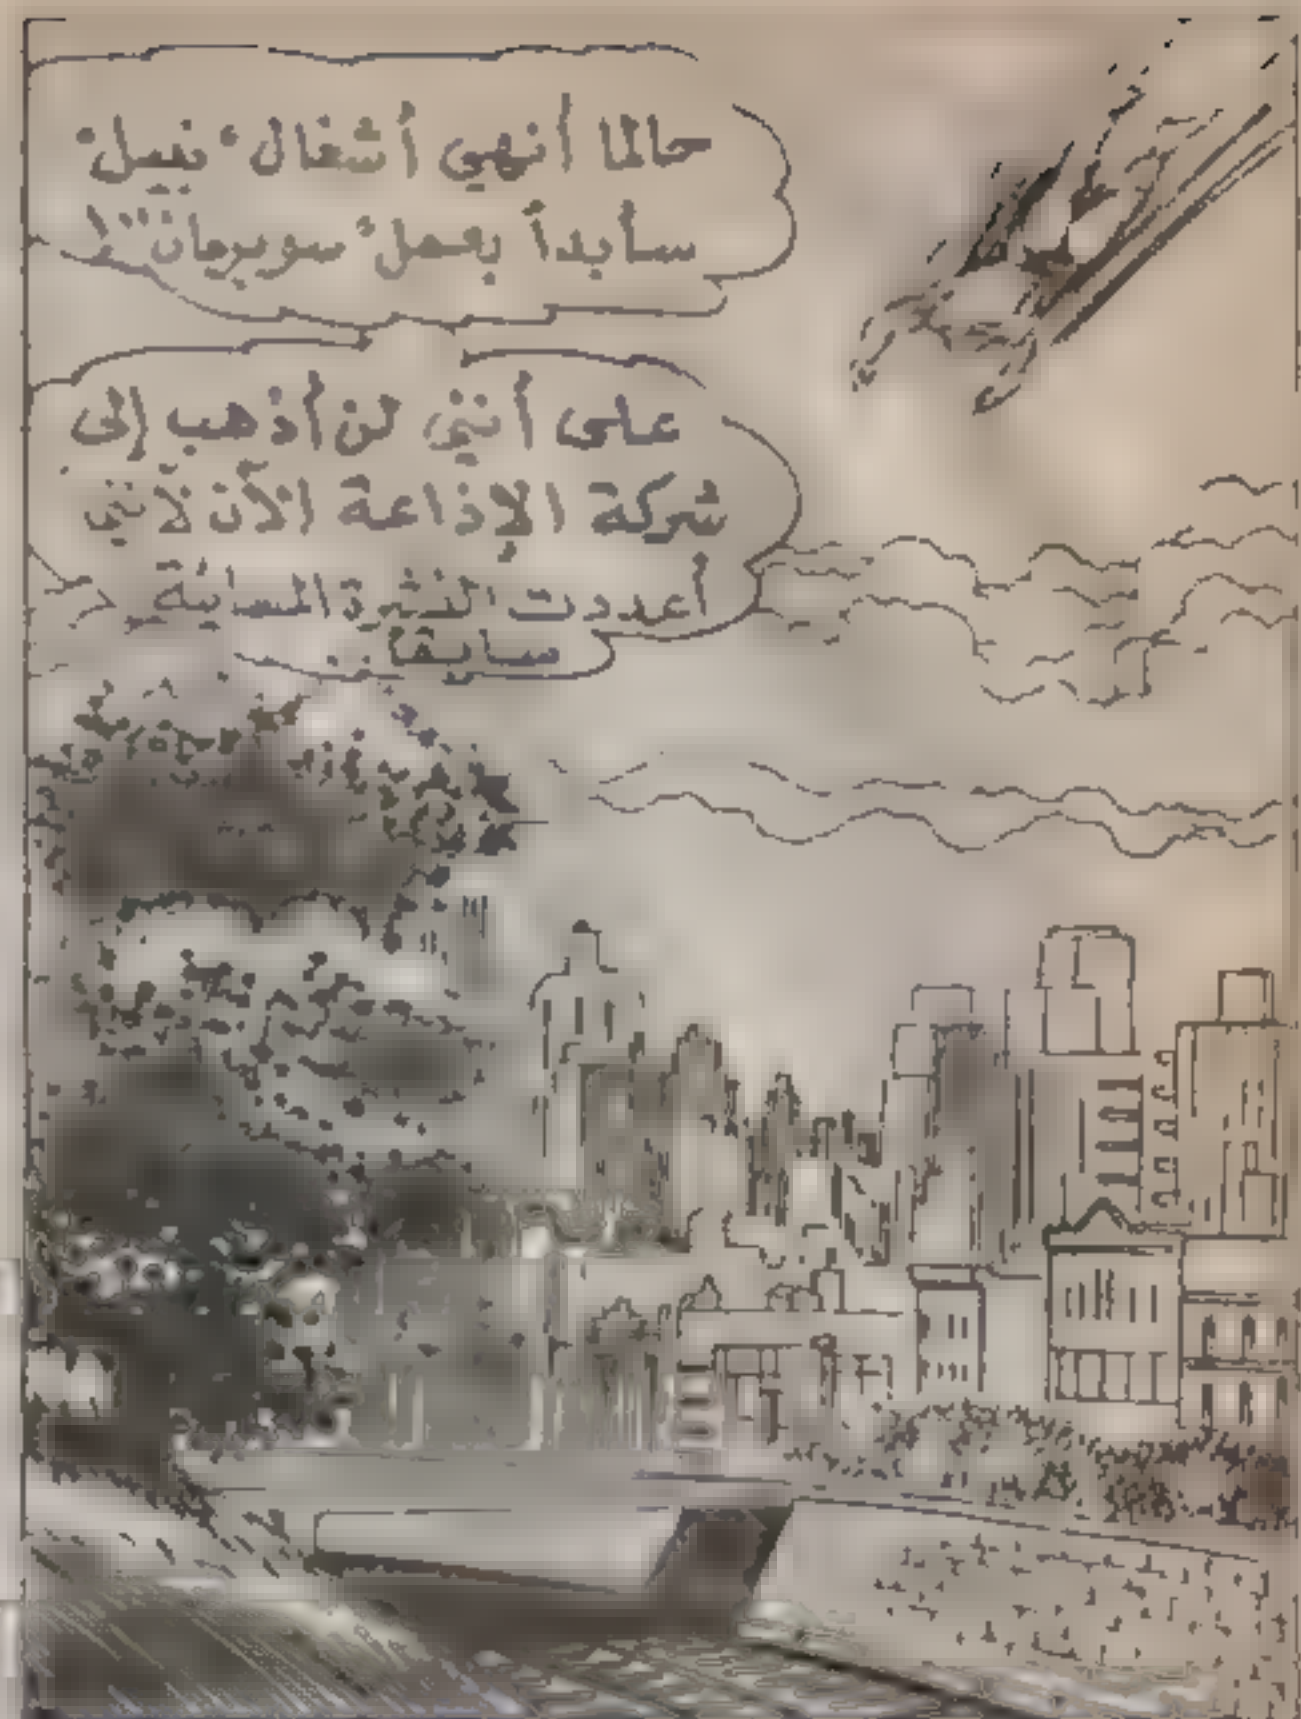 حالما أنهي أشغال "نبيل"
سأبدأ بعمل "سوبرمان"!
على أنني لن أذهب إلى
شركة الإذاعة الآن لأنني
أعددت النشرة المسائية
سابقاً..